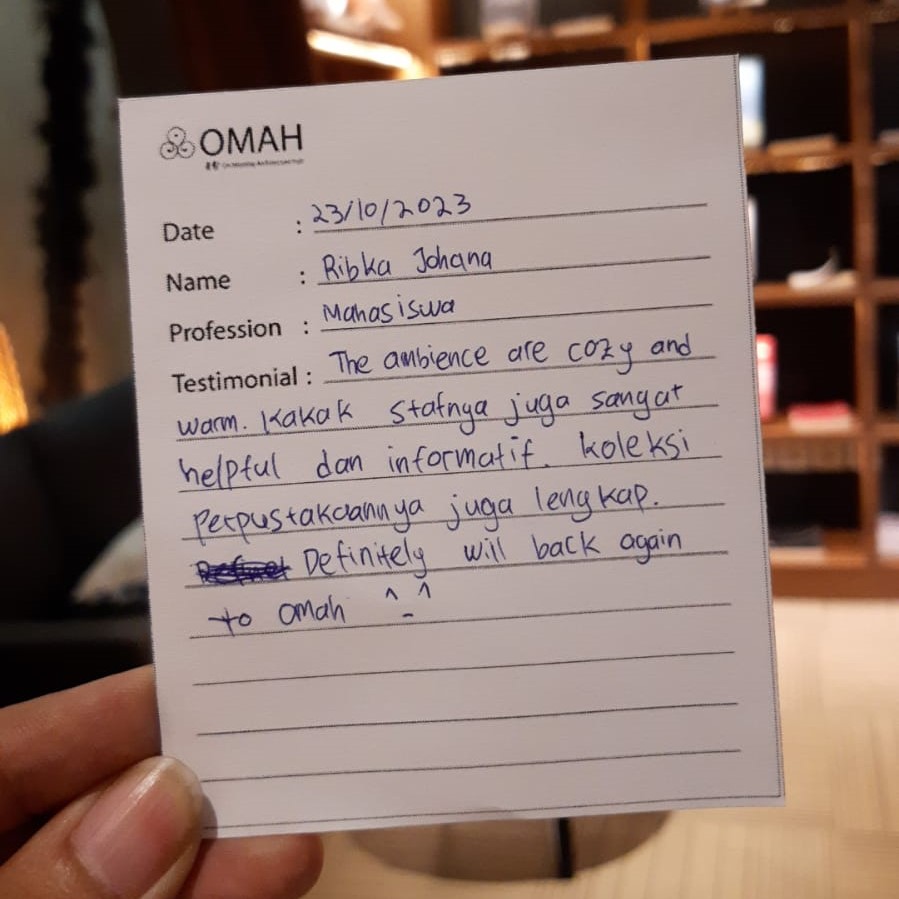 OMAH
Date : 23/10/2023
Name : Ribka Johana
Profession : Mahasiswa
Testimonial : The ambience are cozy and
warm. Kakak stafnya juga sangat
helpful dan informatif. koleksi
Perpustakaannya juga lengkap.
Definitely will back again
to omah ^_^